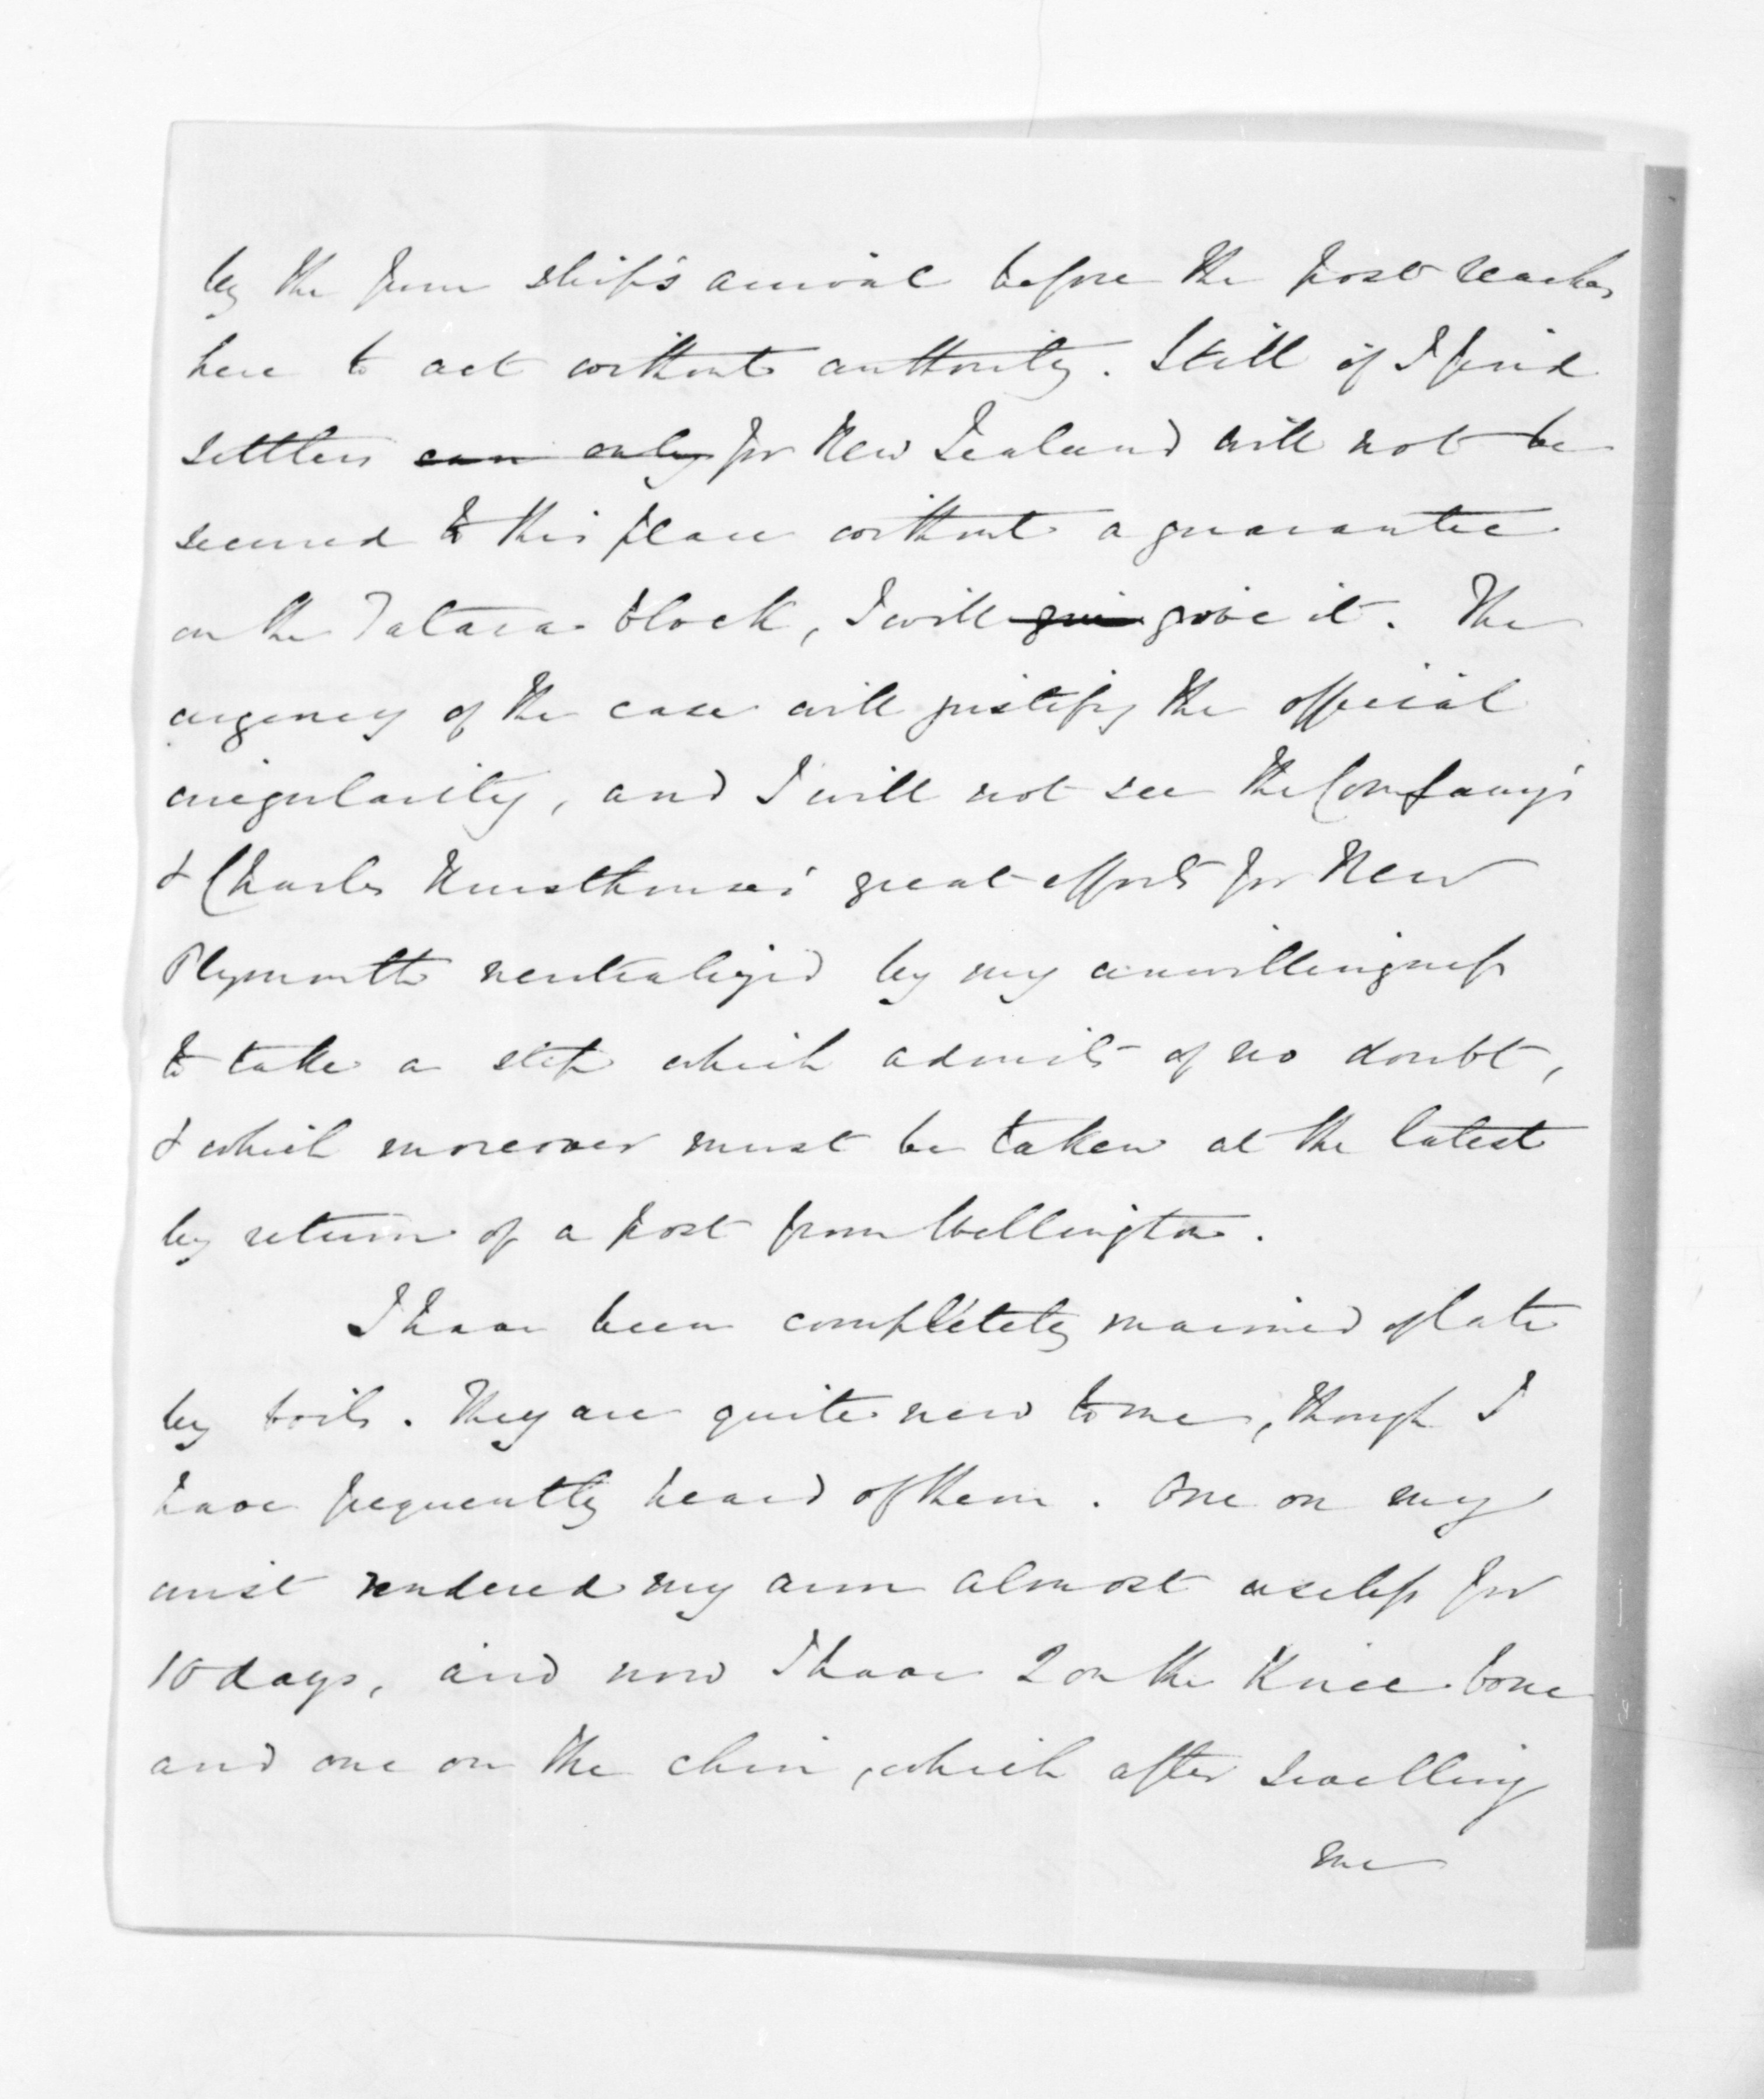 by the June ship's arrival before the post reaches
here to act without authority. Still if I find
settlers can only for New Zealand will not be
secured to this place without a guarantee
on the Tatara block, I will give give it. The
urgency of the case will justify the official
irregularity, and I will not see the Company's
& Charles Hursthouse's great efforts for New
Plymouth neutralized by my unwillingness
to take a step which admits of no doubt,
& which moreover must be taken at the latest
by return of a post from Wellington.
I have been completely maimed of late
by boils. They are quite new to me, though I
have frequently heard of them. One on my
wrist rendered my arm almost useless for
10 days, and now I have 2 on the Knee bone
and one on the chin, which after swelling
me